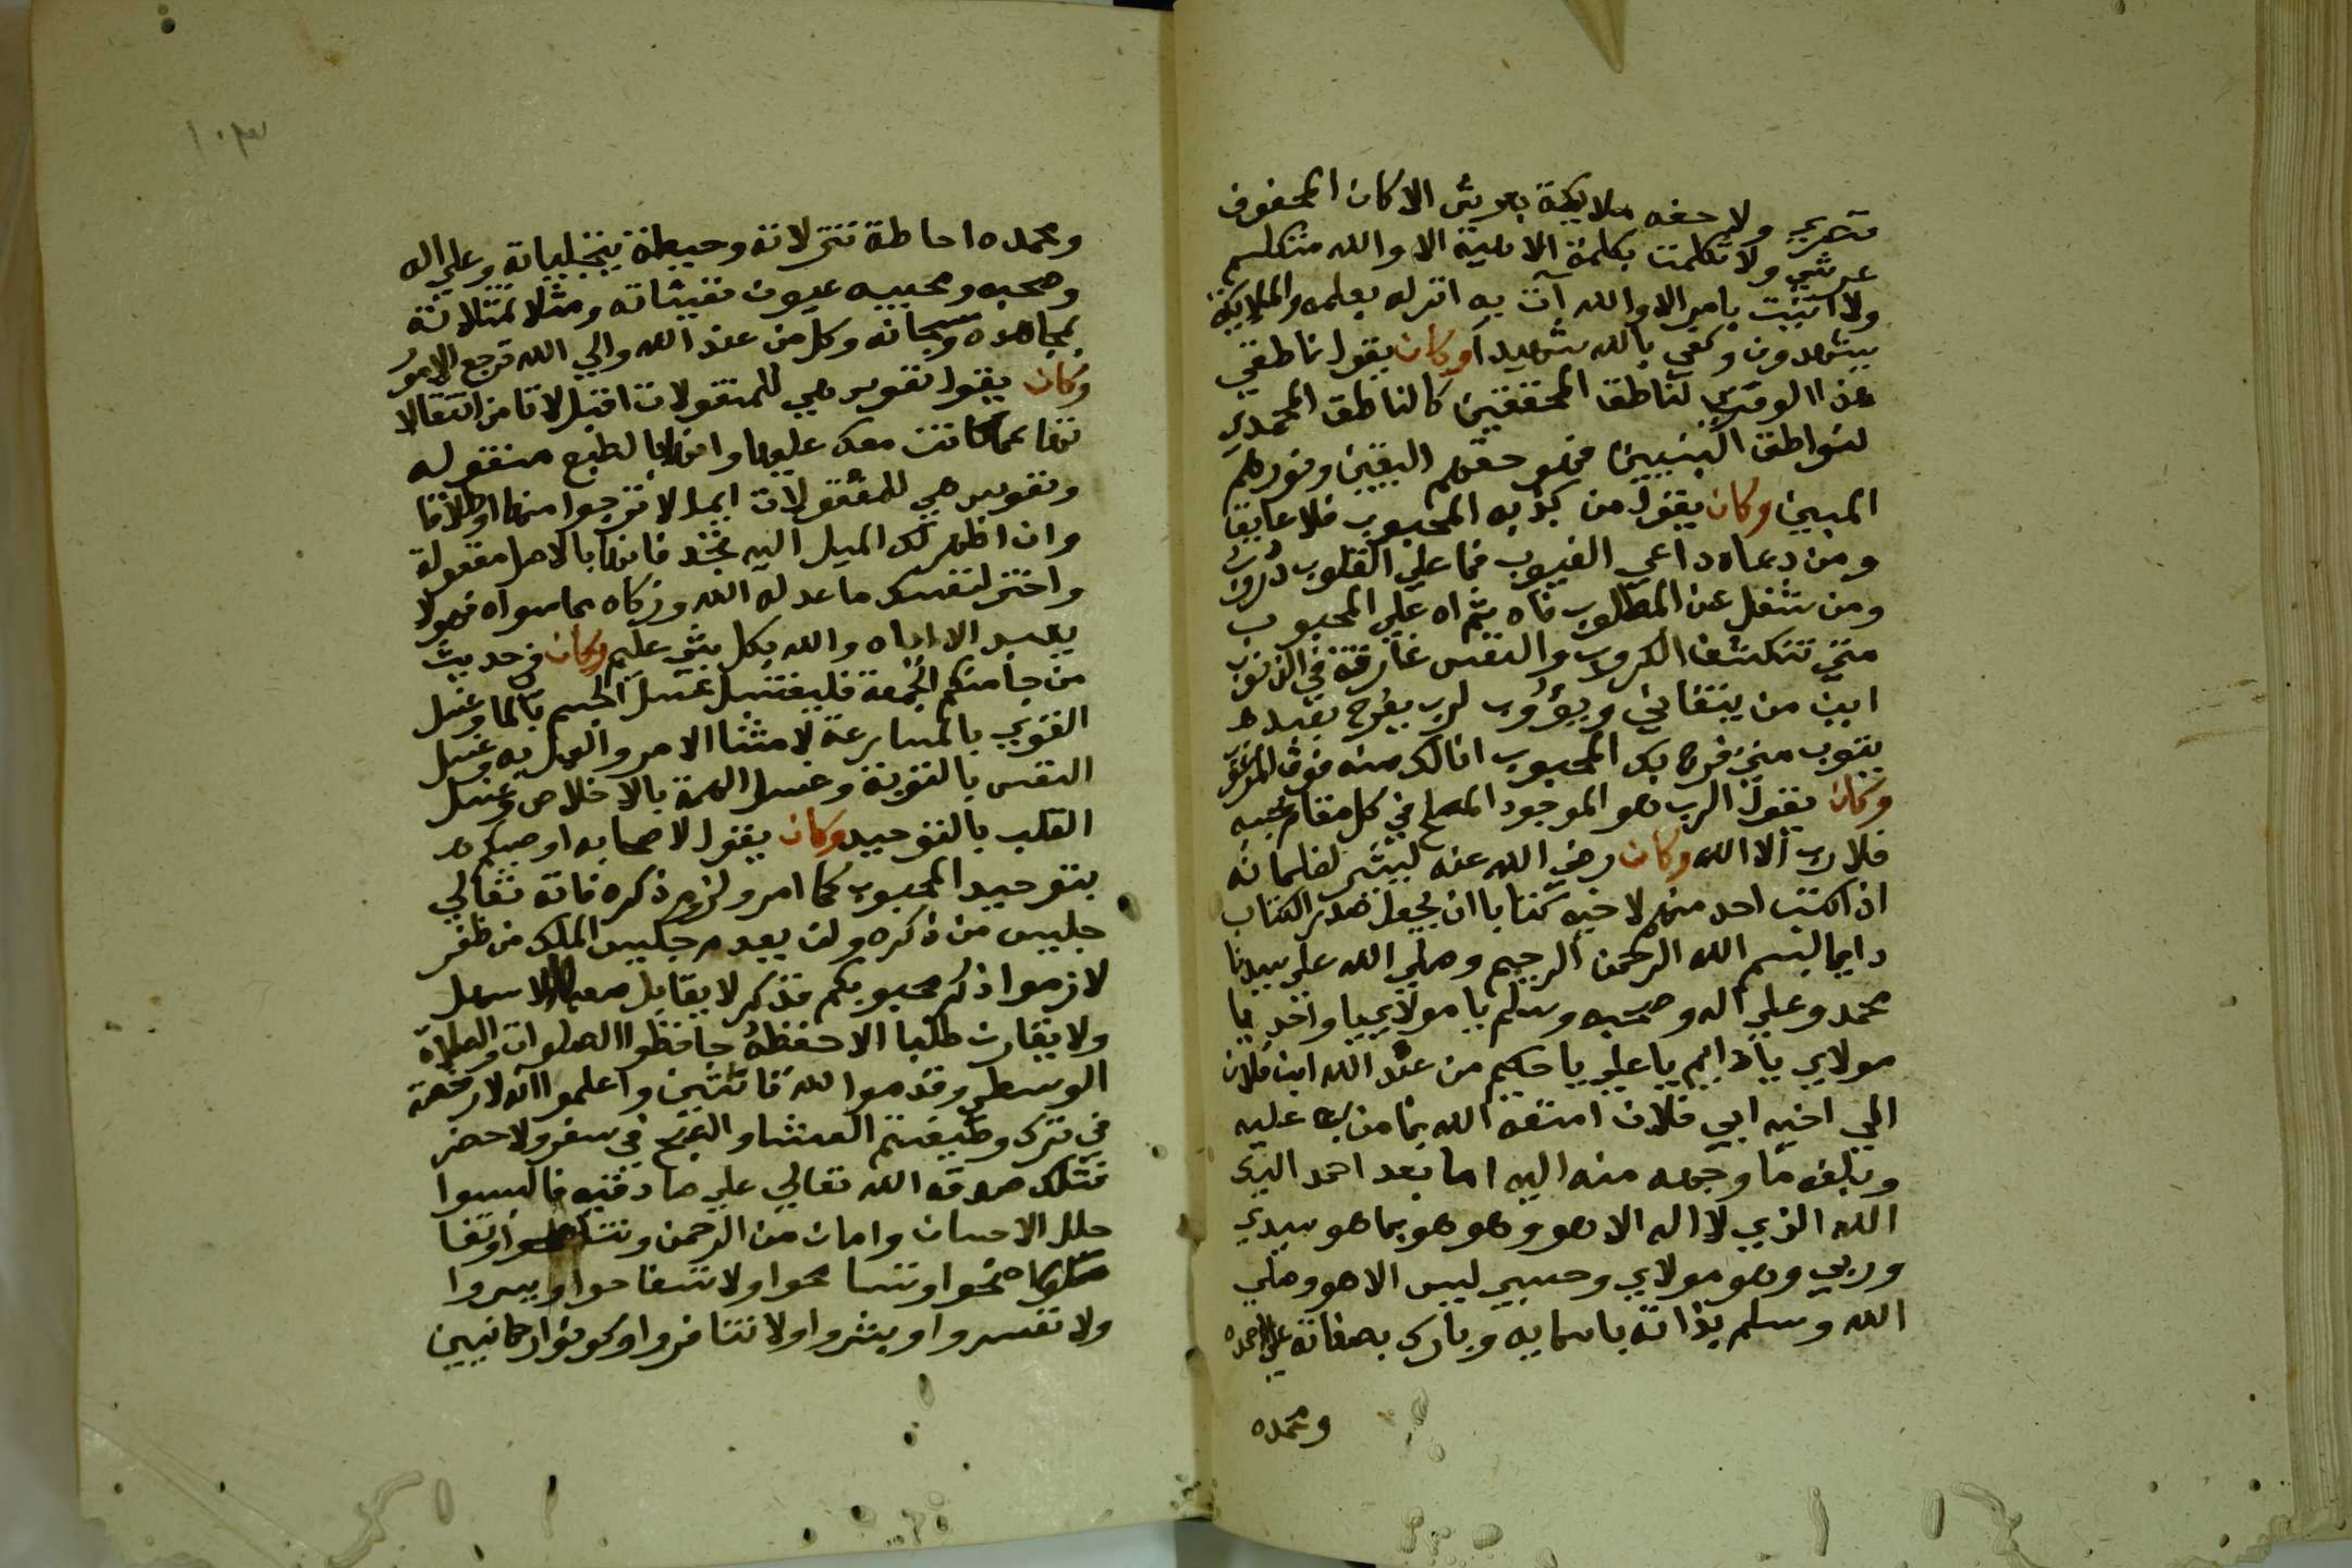 ولا حفه ملايكة بعرش الاكان المحفوف
عرشي ولا تكلمت بكلمة الامنية الا والله متكلم
ولا اتيت بامر الا والله آت به انزله بعلمه والملايكة
يشهدون وكفى بالله شهيدا وكان يقول ناطقي
هذا الوقتي لناطق المحققين كالناطق المحمدي
لنواطق النبيين فهو حقهم اليقين ونورهم
المبين وكان يقول من جذبه المحبوب فلا عايقا
ومن دعاه داعي الغيوب فما على القلوب دروب
ومن شغل عن المطلوب فاه ثم اه على المحبوب
متى تنكشف الكروب والنفس غارقة في الذنوب
اين من يتفانى ويؤوب لرب يفرح بعبده
يتوب متى فرح بك المحبوب انالك منه فوق المرغوب
وكان يقول الرب هو الموجود المصلح في كل مقام بحسبه
فلا رب الا الله وكان رضي الله عنه يشير لغلمانه
اذا كتب احد منهم لاخيه كتابا ان يجعل صدر الكتاب
دايما بسم الله الرحمن الرحيم وصلي الله علي سيدنا
محمد وعلي اله وصحبه وسلم يا مولاي يا واحد يا
مولاي يا دايم يا علي يا حكيم من عند الله ابن فلان
الي اخيه ابي فلان امتعه الله بما من به عليه
وبلغه ما وجهه منه اليه اما بعد احمد اليك
الله الذي لا اله الا هو وهو هو بما هو سيدي
وربي وهو مولاي وحسبي ليس الا هو وصلي
الله وسلم بذاته باسمايه وبارك بصفاته علي احمده
ومحمده
١٠٣
ومحمده احاطة تنزلاته وحيطة تجلياته وعلي اله
وصحبه ومحبيه عيون تعيناته ومثلا تمثلاته
بمحامده وسبحانه وكل من عند الله والي الله ترجع الامور
وكان يقول نفوس هي للمنقولات اقبل لا تامن انتقالا
نفا عما كانت معك عليها وانها بالطبع منقوله
ونفوس هي للمعقولات اميل لا ترجوا منها اطلاقا
وان اظهر لك الميل اليه بجد فانها بالاصل معقولة
واختر لنفسك ما عدله الله وزكاه مما سواه فهو لا
يعبد الا اياه والله بكل شي عليم وكان في حديث
من جا منكم الجمعة فليغتسل غسل الجسم بالما وغسل
القوي بالمسارعة لامتثال الامر والعمل به وغسل
النفس بالتوبة وغسل الهمة بالاخلاص وغسل
القلب بالتوحيد وكان يقول لاصحابه اوصيكم
بتوحيد المحبوب كما امر ولزوم ذكره فانه تعالي
جليس من ذكره ولن يعدم جليس الملك من ظفر
لازموا ذكر محبوبكم فذكر لا يقابل صعبا الا سهل
ولا يقارن طلبا الا حفظه حافظوا الصلوات والصلاة
الوسطي وقوموا لله قانتين واعلموا انه لا رخصة
في ترك وظيفتم العشا والصبح في سفر ولا حضر
فتلك صدقة الله تعالي علي صادقيه فالبسوا
حلل الاحسان وامان من الرحمن
وتسامحوا ولا تشاحوا ويسروا
ولا تعسروا وبشروا ولا تنافروا وكونوا رحمانيين